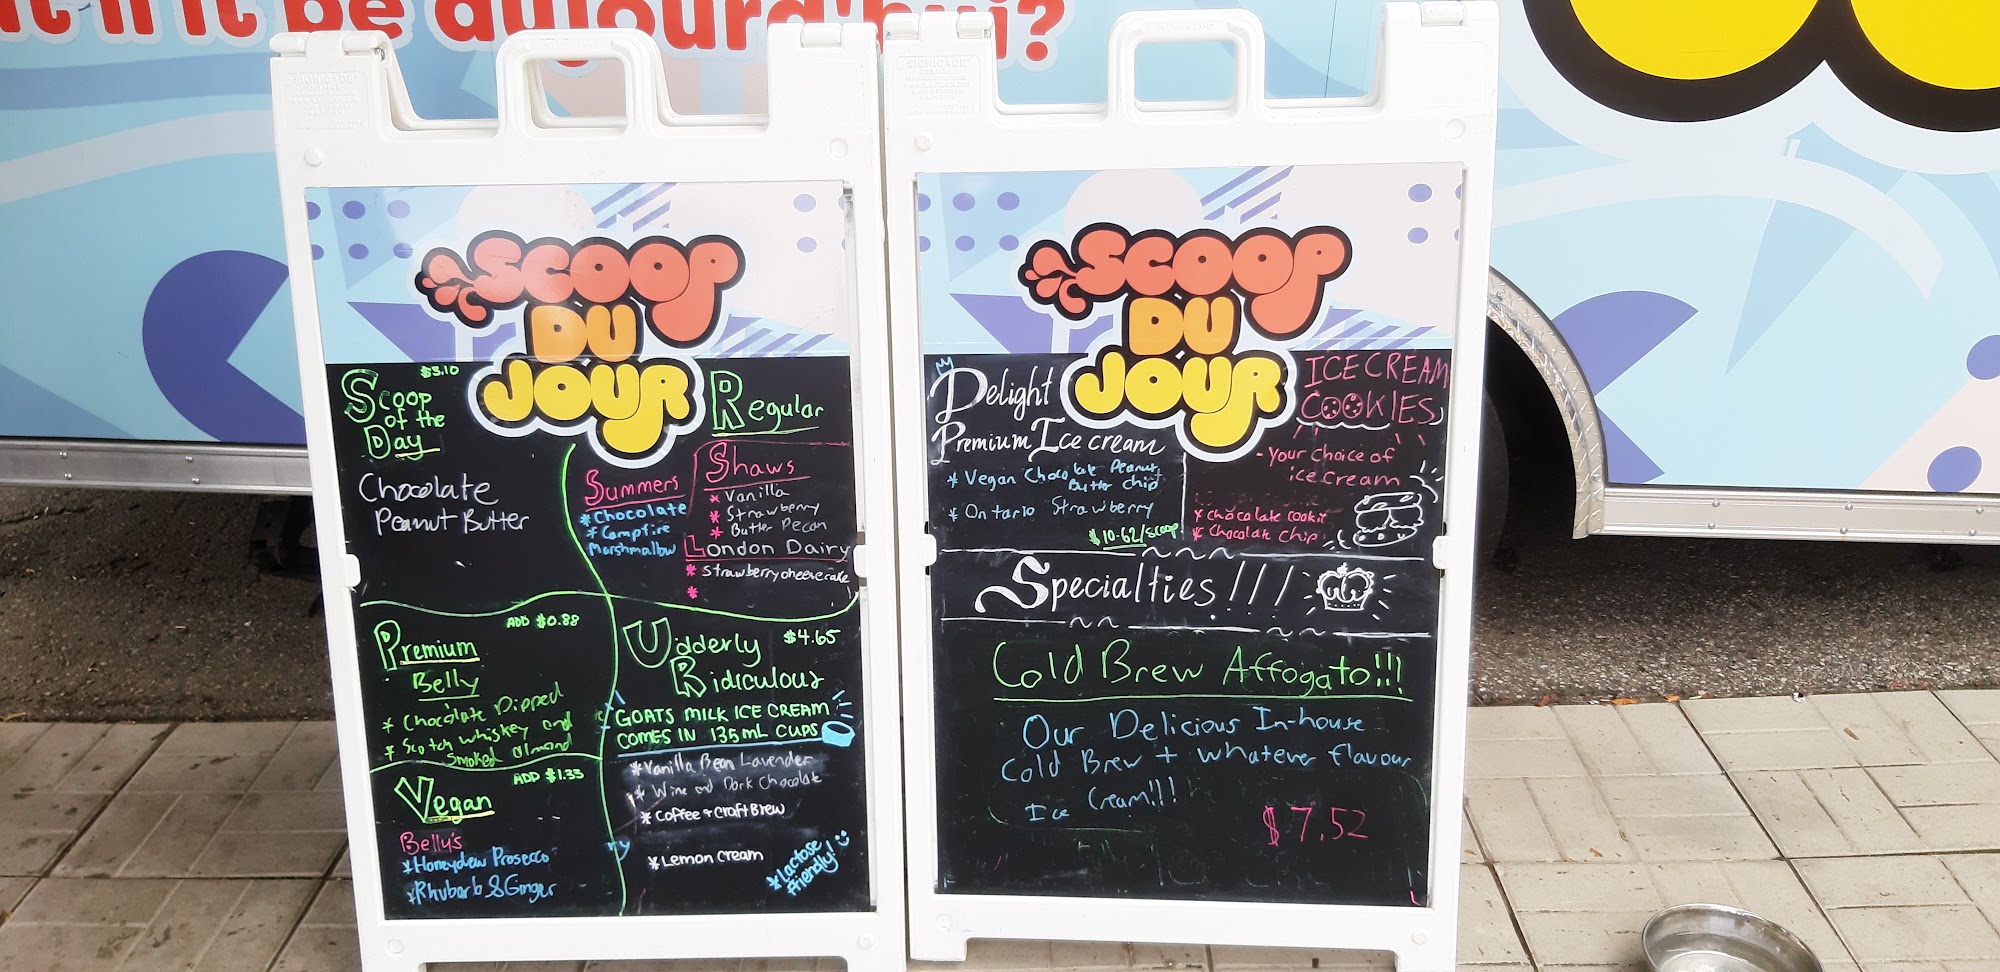 n't it be aujourd'hui?
SCOOP
DU
JOUR
Scoop
of the
Day
$3.10
Chocolate
Peanut Butter
Regular
Summers
*Chocolate
*Campfire
Marshmallow
Shaws
* Vanilla
* Strawberry
* Butter Pecan
London Dairy
* Strawberry cheesecake
*
Premium
ADD $0.88
Belly
* Chocolate Dipped
* Scotch whiskey and
smoked almond
Vegan
ADD $1.33
Belly's
*Honeydew Prosecco
*Rhubarb & Ginger
Udderly
Ridiculous
$4.65
GOATS MILK ICE CREAM
COMES IN 135mL CUPS
*Vanilla Bean Lavender
* Wine and Dark Chocolate
* Coffee + Craft Brew
*Lemon Cream
*Lactose
Friendly!
SCOOP
DU
JOUR
Delight
Premium Ice cream
* Vegan Chocolate Peanut
Butter Chip
* Ontario Strawberry
$10.62/scoop
ICE CREAM
COOKIES
- Your Choice of
ice cream
* Chocolate cookie
* Chocolate chip
Specialties!!!
Cold Brew Affogato!!!
Our Delicious In-house
Cold Brew + whatever flavour
Ice Cream!!!
$7.52